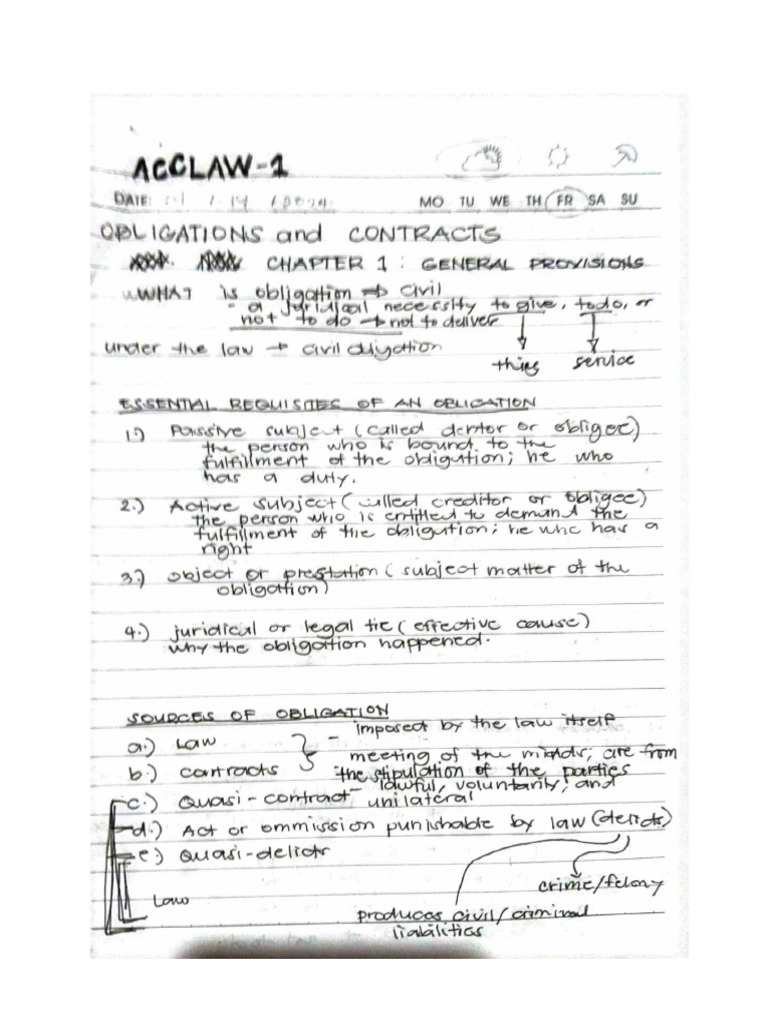 ACCLAW-1
DATE: MO TU WE TH FR SA SU
OBLIGATIONS and CONTRACTS
CHAPTER 1: GENERAL PROVISIONS
WHAT is obligation → civil
- a juridical necessity to give, to do, or
not to do → not to deliver
under the law → civil obligation
thing service
ESSENTIAL REQUISITES OF AN OBLIGATION
1.) Passive subject (called debtor or obligee)
the person who is bound to the
fulfillment of the obligation; he who
has a duty.
2.) Active subject (called creditor or obligee)
the person who is entitled to demand the
fulfillment of the obligation; he who has a
right
3.) object or prestation (subject matter of the
obligation)
4.) juridical or legal tie (effective cause)
why the obligation happened.
SOURCES OF OBLIGATION
- imposed by the law itself
a.) Law
meeting of the minds; are from
b.) contracts the stipulation of the parties
- lawful, voluntary, and
c.) Quasi-contract unilateral
d.) Act or ommission punishable by law (delicts)
e.) Quasi-delicts
crime/felony
Law
produces civil/criminal
liabilities